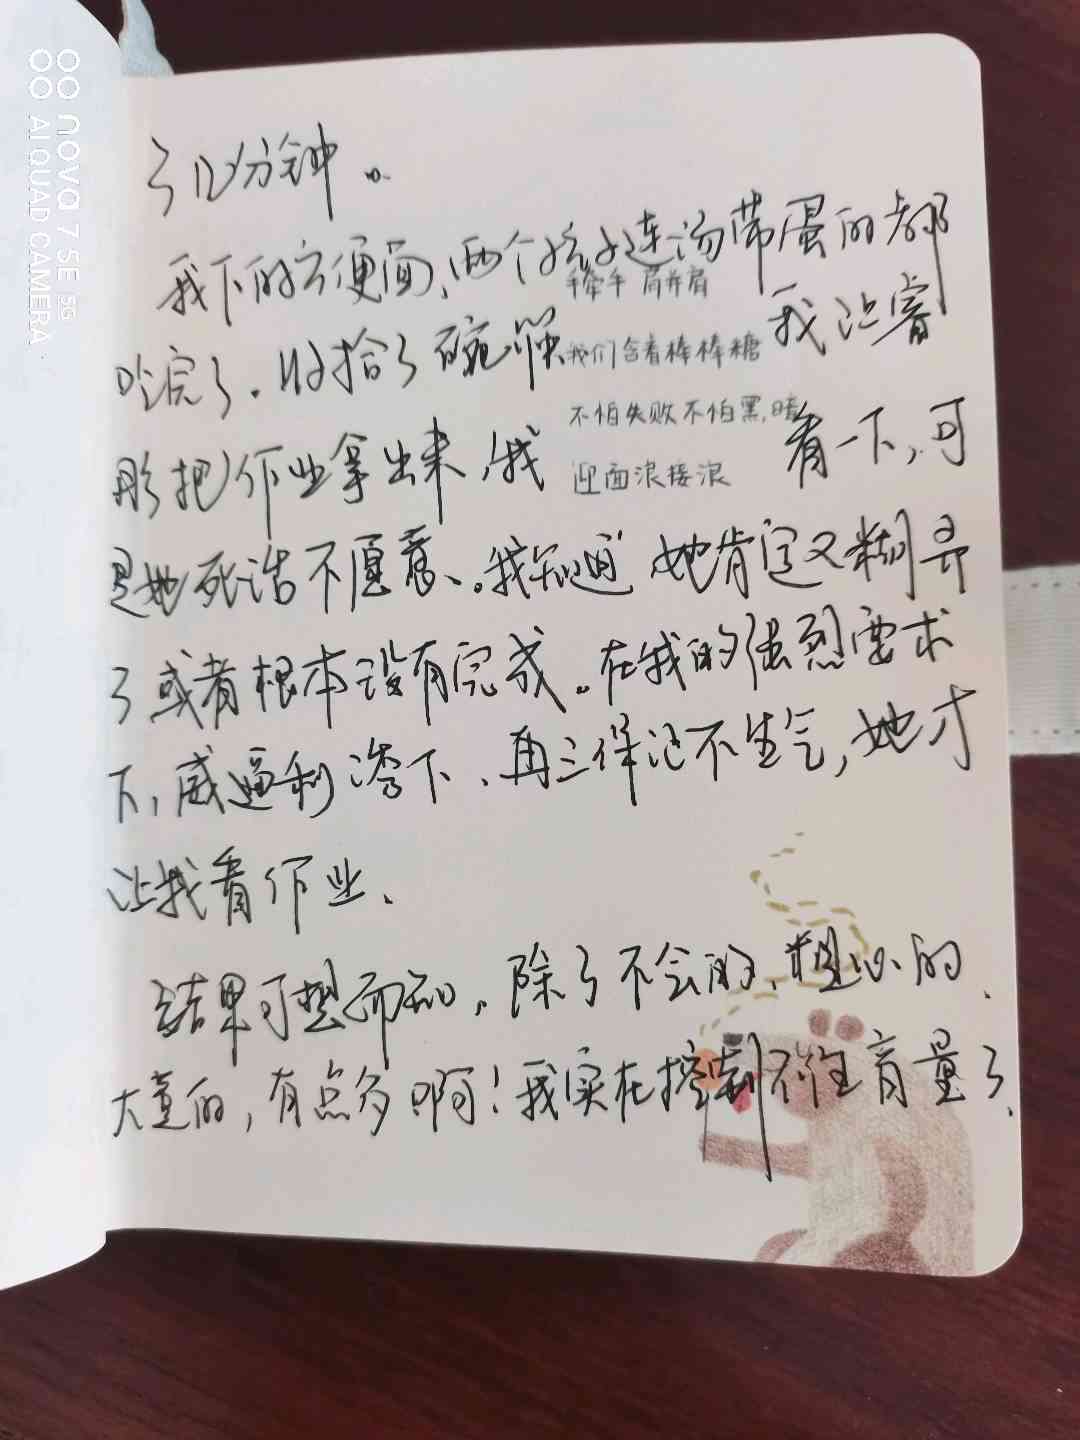 了几分钟。
我下的方便面,两个孩子连汤带蛋的都
手牵手 肩并肩
吃完了。收拾了碗筷 我让睿
我们含着棒棒糖
不怕失败不怕黑暗
彤把作业拿出来,我 看一下,可
迎面浪接浪
是她死活不愿意、。我知道她肯定又糊弄
了或者根本没有完成。在我的强烈要求
下,威逼利诱下、再三保证不生气,她才
让我看作业、
结果可想而知。除了不会的、粗心的、
大意的,有点多啊!我实在控制不住音量了、
nova 7 SE 5G
AI QUAD CAMERA